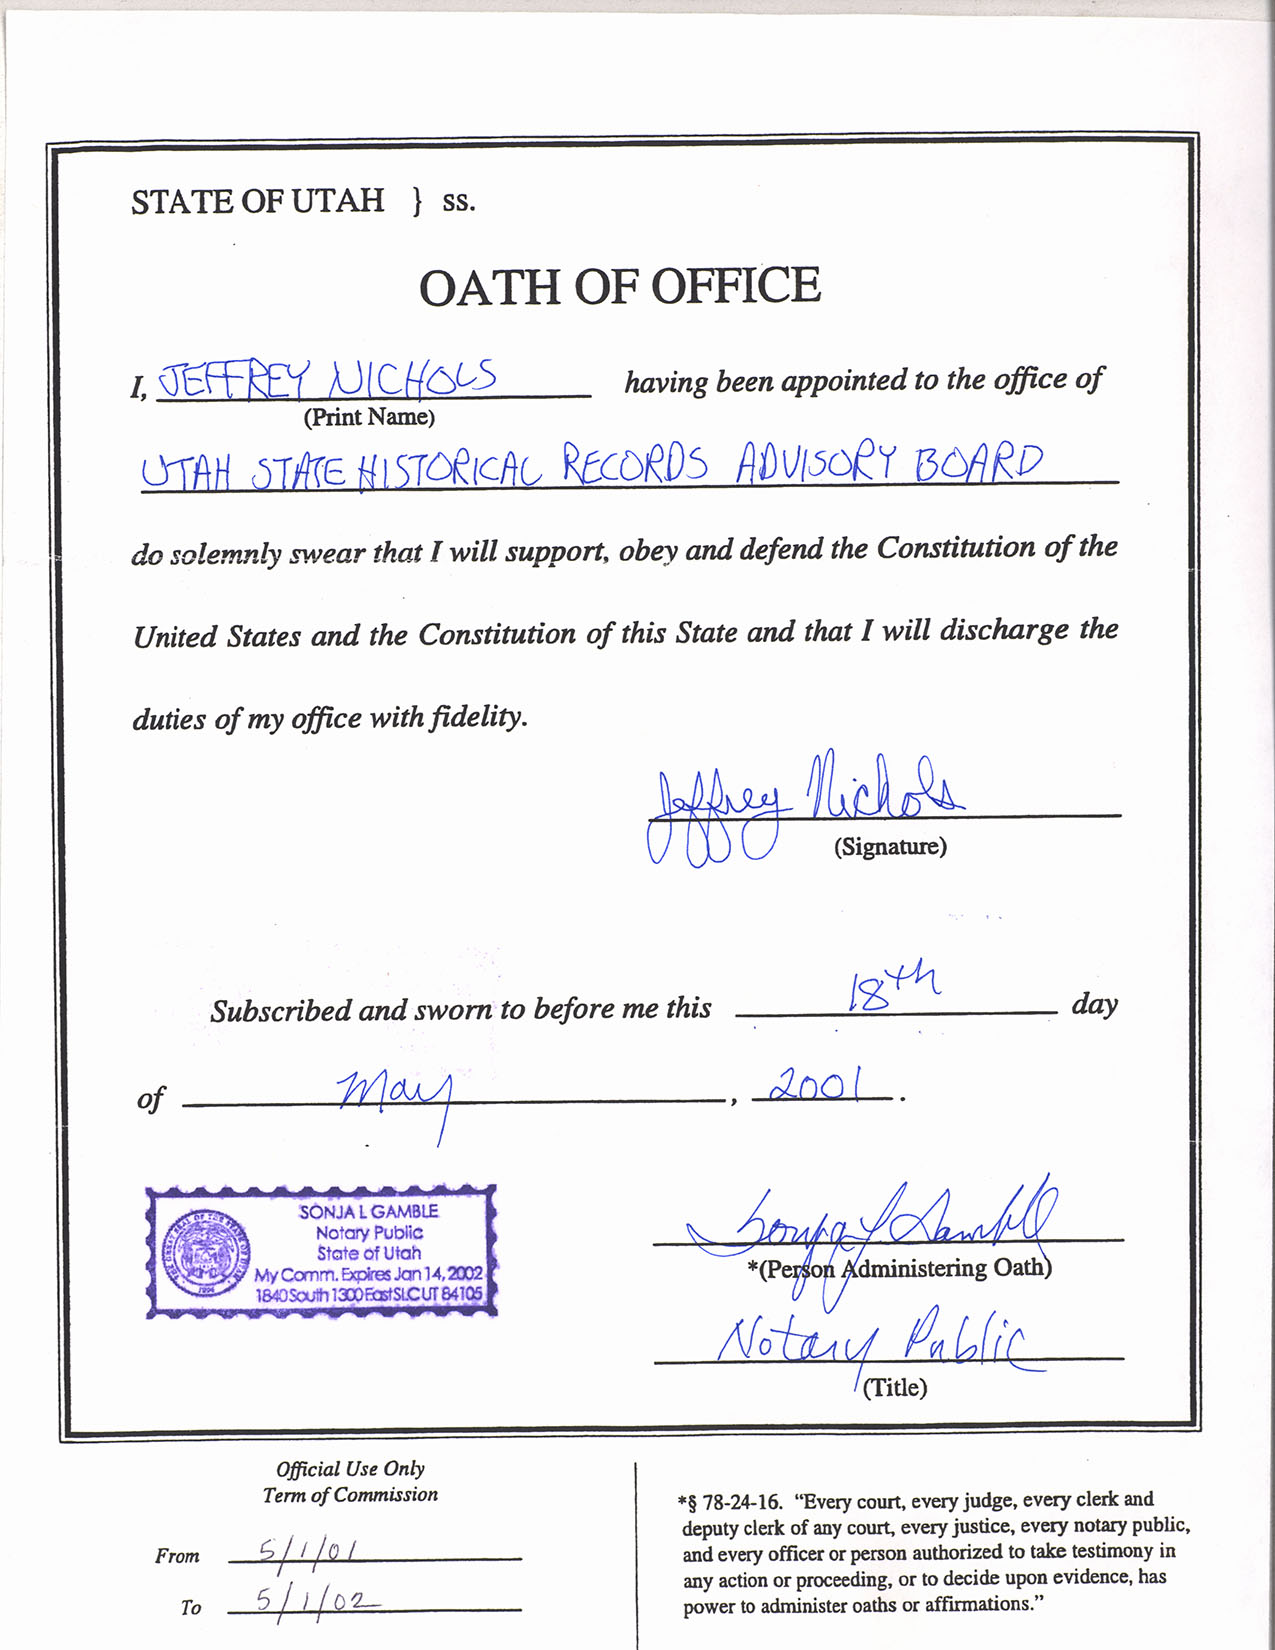 STATE OF UTAH } ss.
OATH OF OFFICE
I, JEFFREY NICHOLS having been appointed to the office of
(Print Name)
UTAH STATE HISTORICAL RECORDS ADVISORY BOARD
do solemnly swear that I will support, obey and defend the Constitution of the
United States and the Constitution of this State and that I will discharge the
duties of my office with fidelity.
Jeffrey Nichols
(Signature)
Subscribed and sworn to before me this 18th day
of May, 2001.
SONJA L GAMBLE
Notary Public
State of Utah
My Comm. Expires Jan 14, 2002
1840 South 1300 East SLC UT 84105
Sonja L Gamble
*(Person Administering Oath)
Notary Public
(Title)
Official Use Only
Term of Commission
From 5/1/01
To 5/1/02
*§ 78-24-16. “Every court, every judge, every clerk and
deputy clerk of any court, every justice, every notary public,
and every officer or person authorized to take testimony in
any action or proceeding, or to decide upon evidence, has
power to administer oaths or affirmations.”